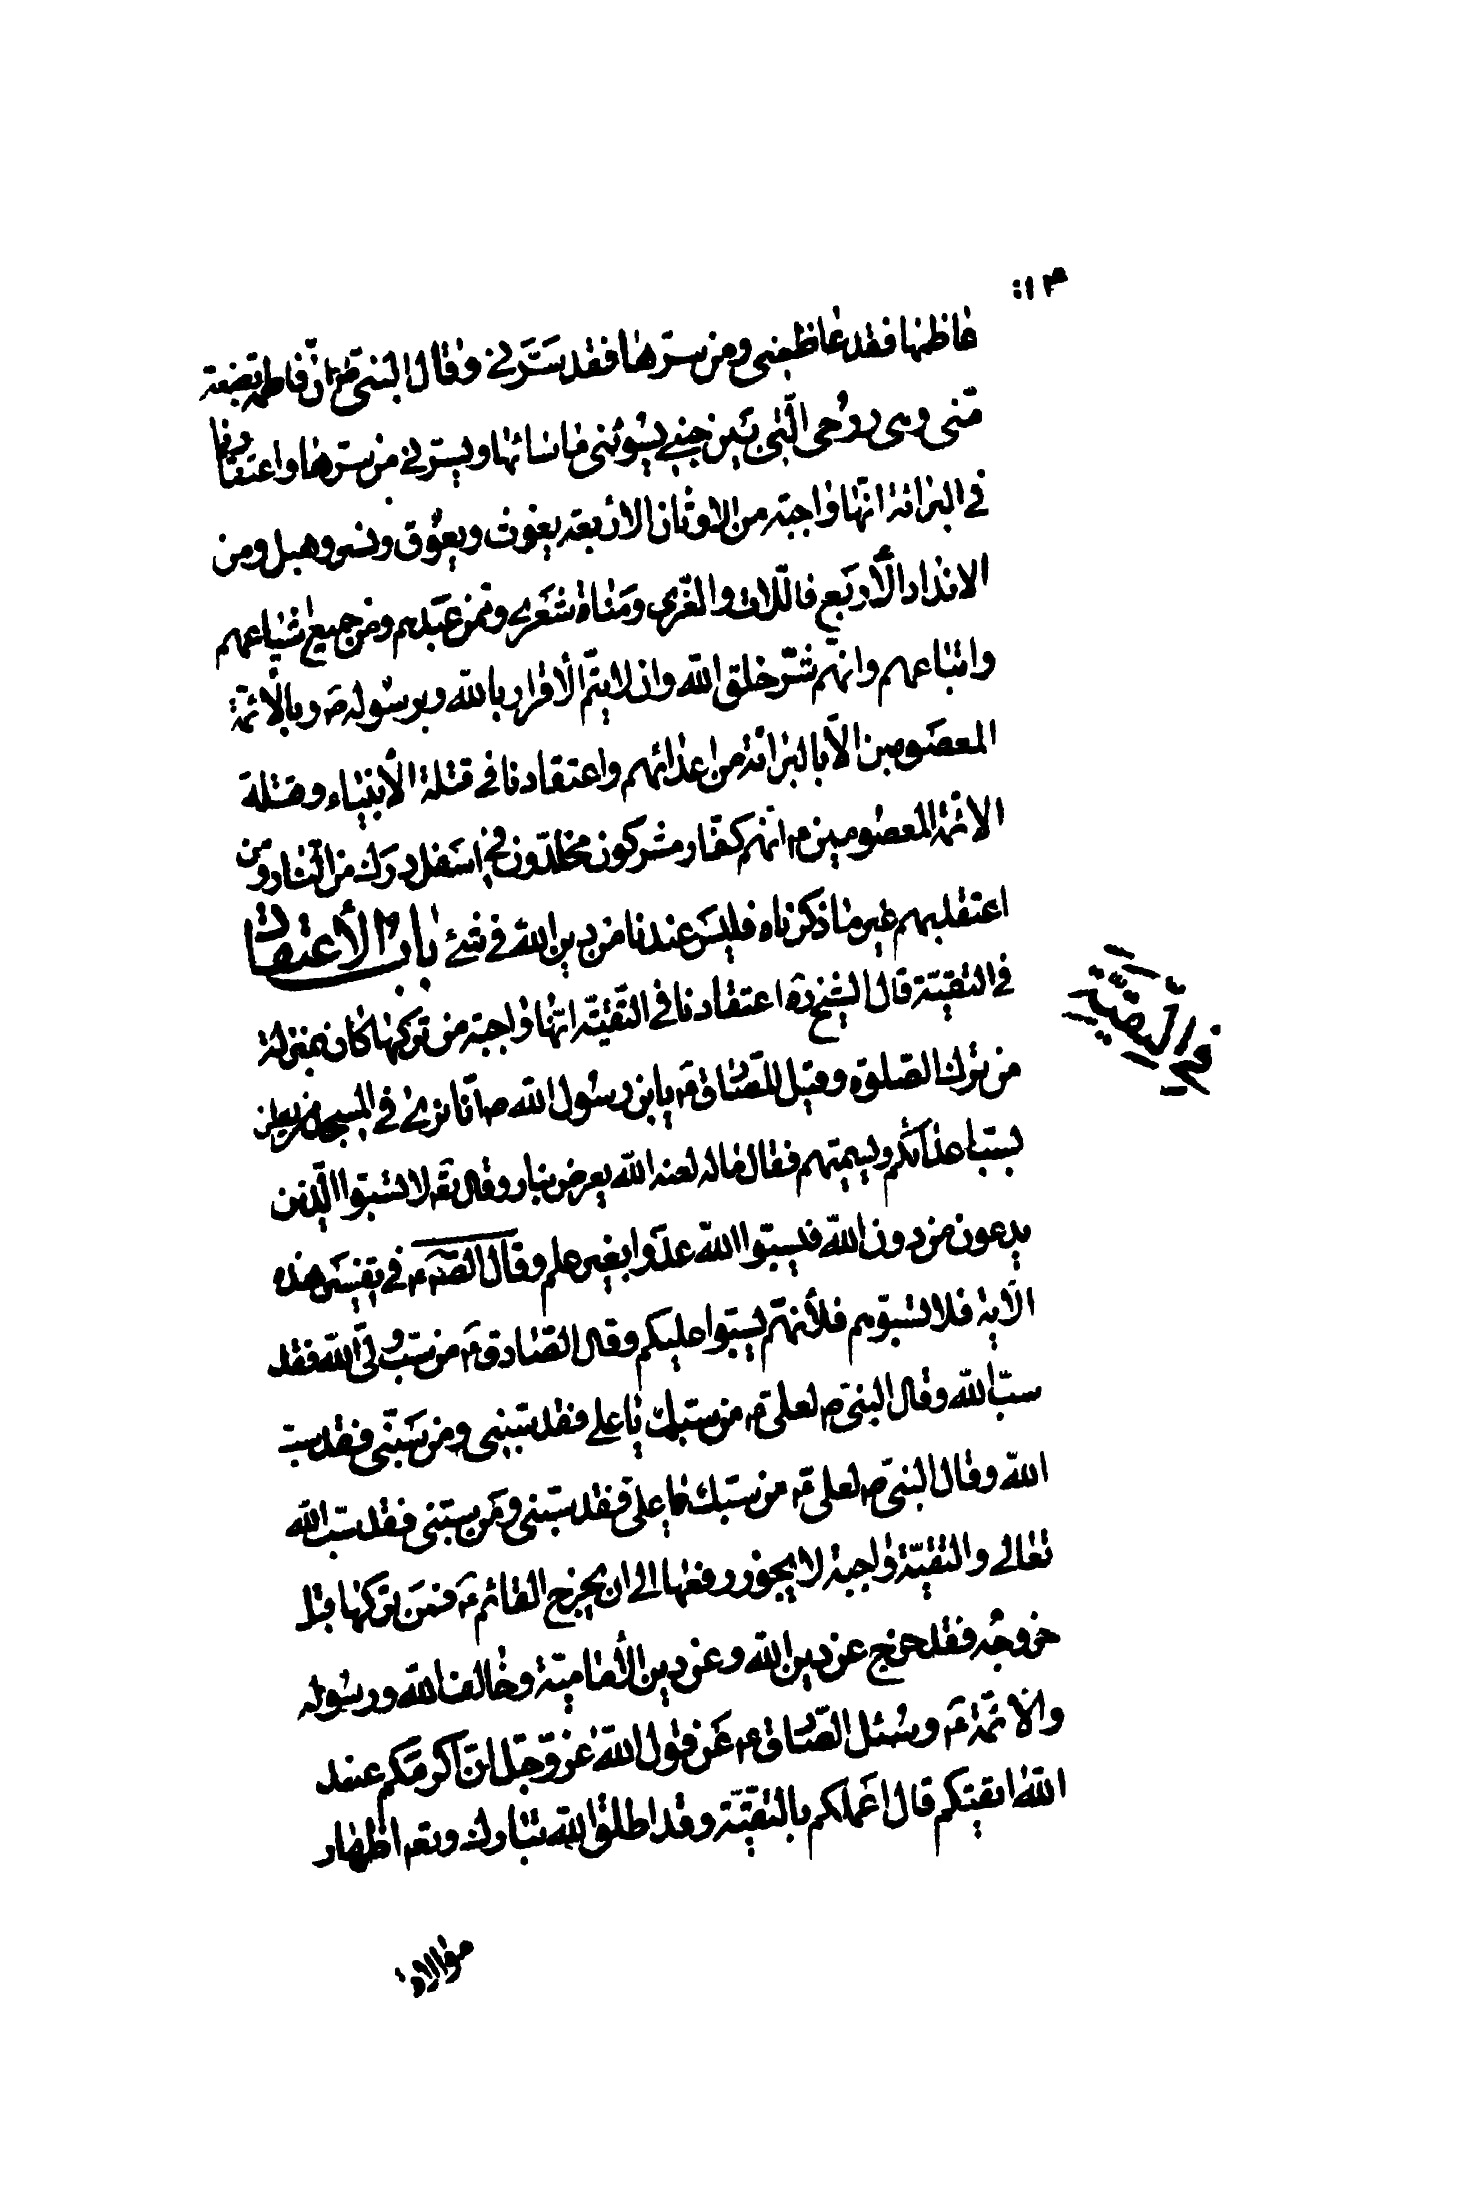 غاظها فقد غاظنی ومن سرّها فقد سَرَّنی وقال النبی ص انّ فاطمة بضعة
منّی وهی روحی الّتی بین جنبی یسوئنی ما سائها ویسرّنی من سرّها واعتقادنا
فی البرائة انّها واجبة من الاوثان الاربعة یغوث ویعوق ونسر وهبل ومن
الانداد الأربع فاللّات والعزّی ومناة شعری وممّن عبدهم ومن جمیع اشیاعهم
واتباعهم وانّهم شرّ خلق الله وان لا یتمّ الأقرار بالله وبرسوله ص وبالأئمّة
المعصومین الّا بالبرائة من اعدائهم واعتقادنا فی قتلة الأنبیاء وقتلة
الائمّة المعصومین ع انّهم کفّار مشرکون مخلّدون فی اسفل درک من النّار ومن
اعتقد بهم غیر ما ذکرناه فلیس عندنا من دین الله فی شئ باب الأعتقاد
فی التقیّة قال الشیخ ره اعتقادنا فی التّقیّة انّها واجبة من ترکها کان بمنزلة
من ترک الصّلوة وقیل للصّادق ع یابن رسول الله ص انّا نری فی المسجد من یعلن
بسبّ اعدائکم ویسمیّهم فقال ما له لعنه الله یعرض بنا وقال تع لا تسبّوا الّذین
یدعون من دون الله فیسبّوا الله عدوا بغیر علم وقال الصّ ع فی تفسیر هذه
الآیة فلا تسبّوهم فلأنهّم یسبّوا علیکم وقال الصّادق ع من سبّ ولیّ الله فقد
سبّ الله وقال النبیّ ص لعلیّ ع من سبّک یا علی فقد سبّنی ومن سَبّنی فقد سبّ
الله وقال النبیّ ص لعلی ع من سبّک یا علی فقد سبّنی ومن سبّنی فقد سبّ الله
تعالی والتقیّة واجبة لا یجوز رفعها الی ان یخرج القائم ع فمن ترکها قبل
خروجه فقد خرج عن دین الله وعن دین الأمامیّة وخالف الله ورسوله
والائمّة ع وسئل الصّادق ع عن قول الله عزّ وجلّ انّ اکرمکم عند
الله اتقیکم قال اعملکم بالتقیّة وقد اطلق الله تبارک وتع اظهار
موالاة
فی التّقیّة